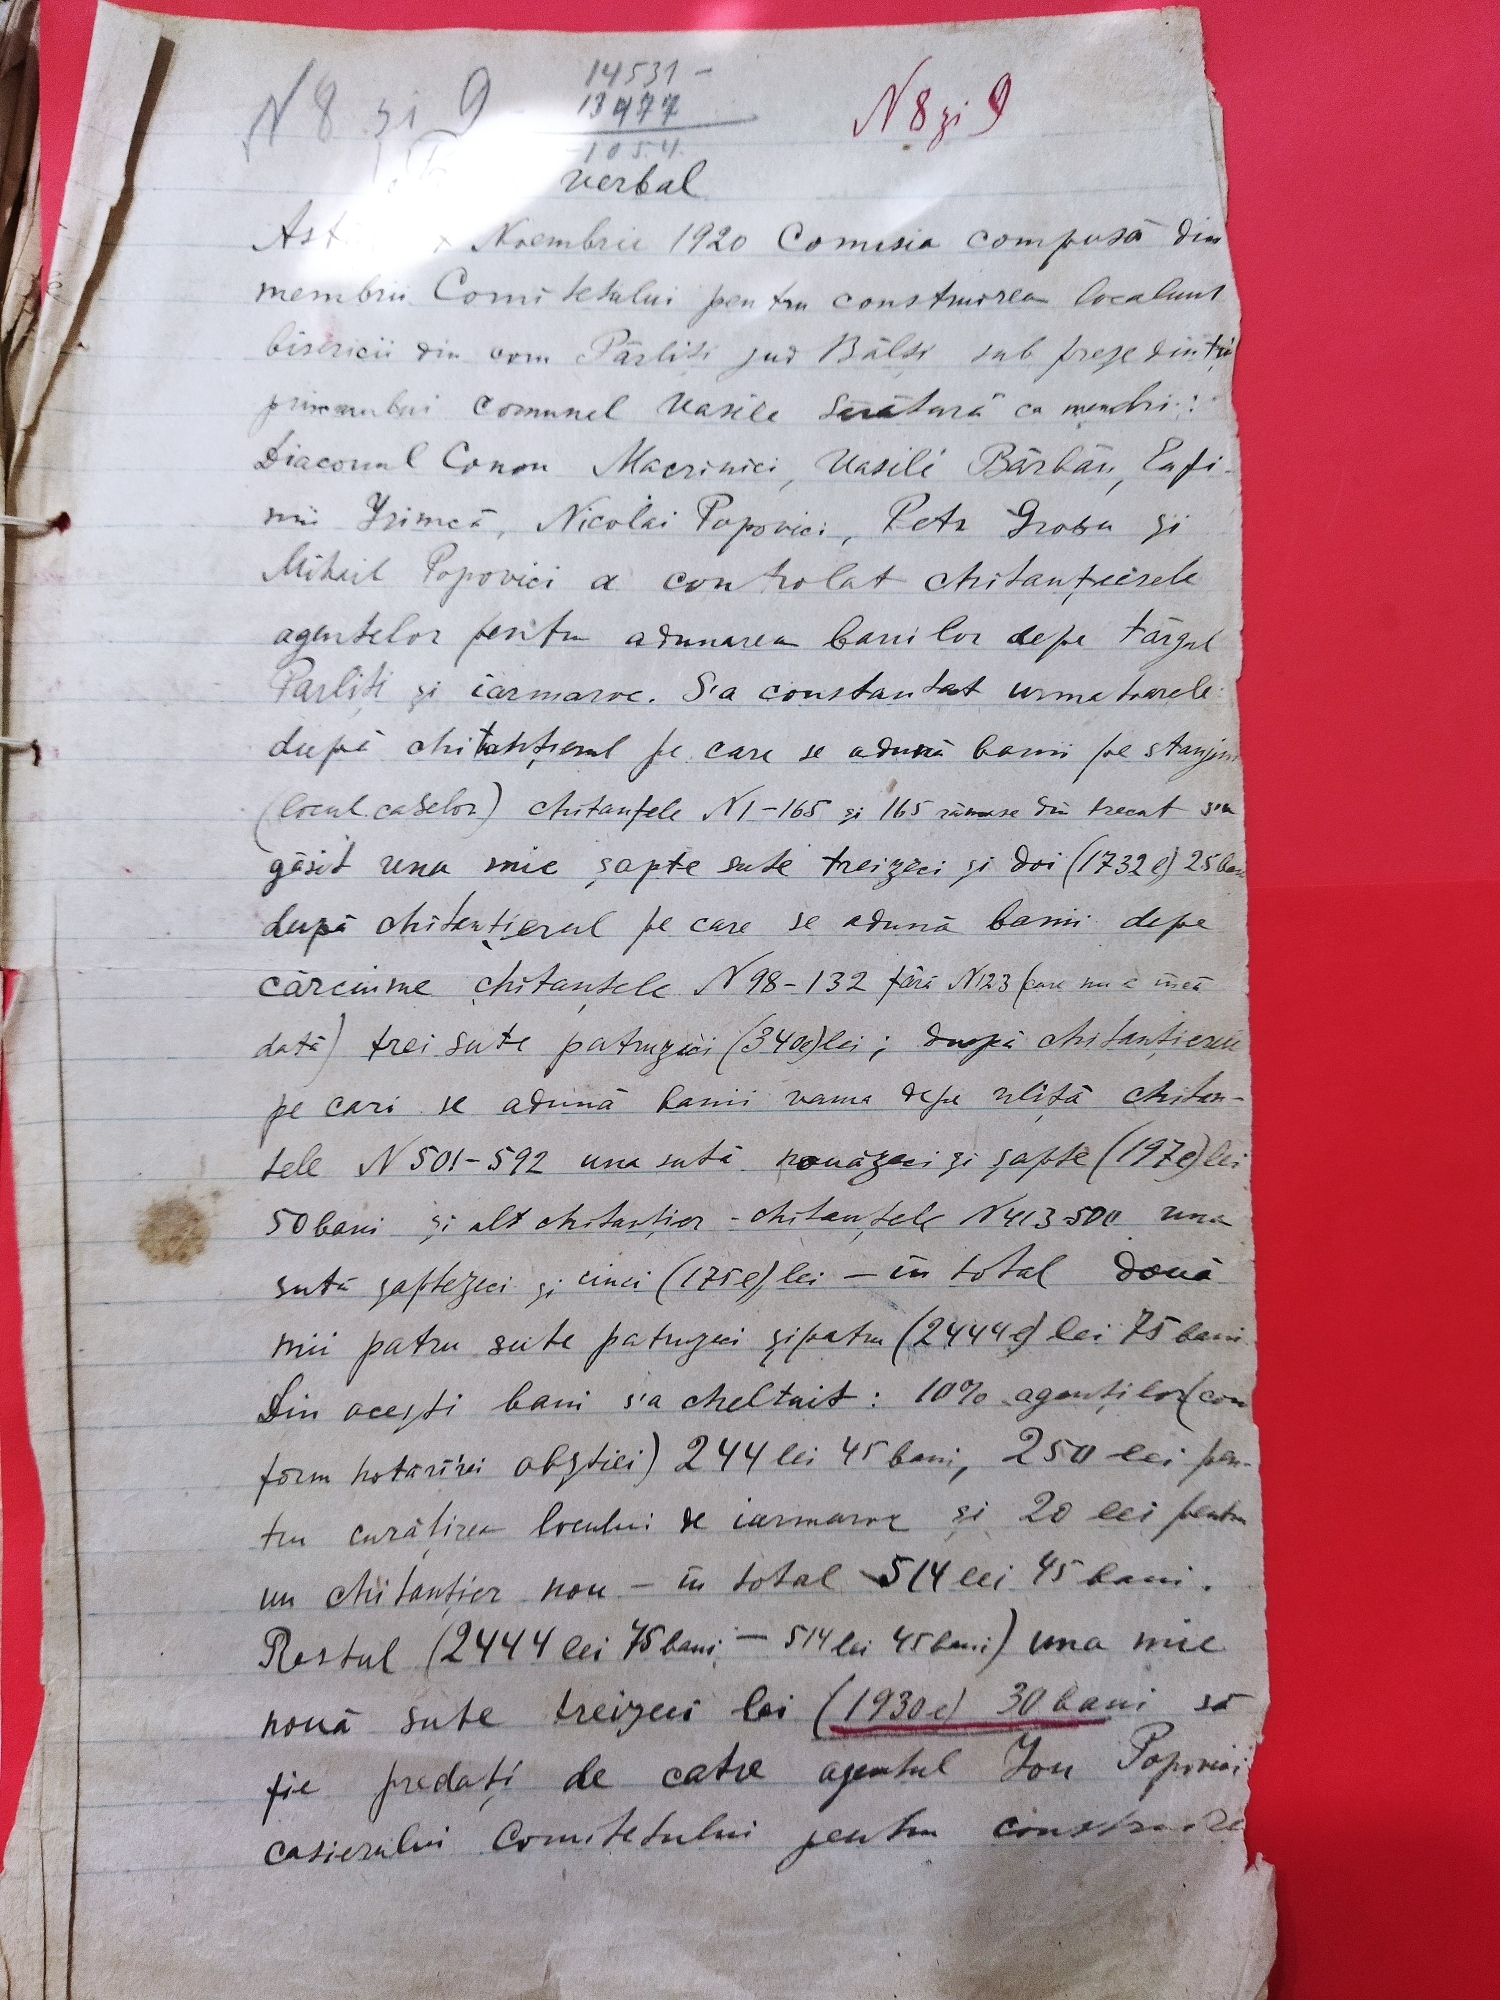 N 8 și 9
14531 -
13477
1054.
N 8 și 9
verbal
Noembrie 1920 Comisia compusă din
membrii Comitetului pentru construirea localului
bisericii din com Pârliți jud Bălți sub președinția
primarului comunel Vasile Sărătură cu membri:
Diaconul Conon Macrinici, Vasile Bărbăn, Eufi-
mii Irimcă, Nicolai Popovici, Petr Grosu și
Mihail Popovici a controlat chitanțierele
agentelor pentru adunarea banilor depe târgul
Parliți și iarmaroc. S'a constantat urmatoarele:
după chitanțierul pe care se adună banii pe stanjini
(locul caselor) chitanțele N 1-165 și 165 rămase din trecut s'a
găsit una mie șapte sute treizeci și doi (1732 l) 25 bani
după chitanțierul pe care se adună banii depe
cârciume chitanțele N 98-132 fără N 123 (care nu e încă
dată) trei sute patruzeci (340 l) lei; după chitanțierul
pe cari se adună banii vama depe uliță chitan-
țele N 501-592 una sută nouăzeci și șapte (197 l) lei
50 bani și alt chitanțier - chitanțele N 413-500 una
sută șaptezeci și cinci (175 l) lei - în total două
mii patru sute patruzeci și patru (2444 l) lei 75 bani
Din acești bani s'a cheltuit: 10% agenților (con
form hotărîrei obștiei) 244 lei 45 bani, 250 lei pen-
tru curățirea locului de iarmaroc și 20 lei pentru
un chitanțier nou - în total 514 lei 45 bani.
Restul (2444 lei 75 bani - 514 lei 45 bani) una mie
nouă sute treizeci lei (1930 l) 30 bani să
fie predați de catre agentul Ion Popovici
casierului Comitetului pentru construire